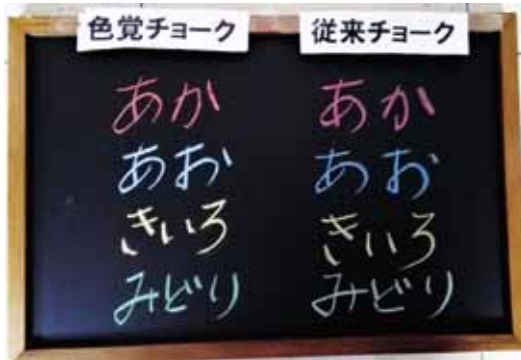 色覚チョーク
あか
あお
きいろ
みどり
従来チョーク
あか
あお
きいろ
みどり